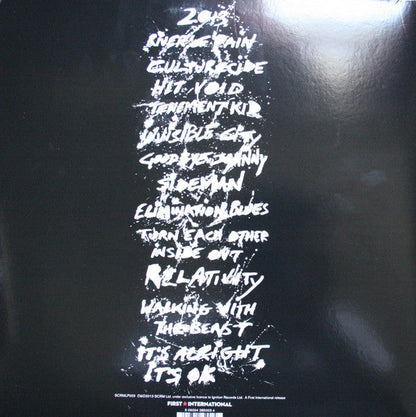 2013
RIVER OF PAIN
CULTURECIDE
HIT VOID
TENEMENT KID
INVISIBLE CITY
GOODBYE JOHNNY
SIDEMAN
ELIMINATION BLUES
TURN EACH OTHER
INSIDE OUT
RELATIVITY
WALKING WITH
THE BEAST
IT'S ALRIGHT
IT'S OK
SCRMLP003 ©℗2013 SCRM Ltd. under exclusive licence to Ignition Records Ltd. A First International release
FIRST★INTERNATIONAL